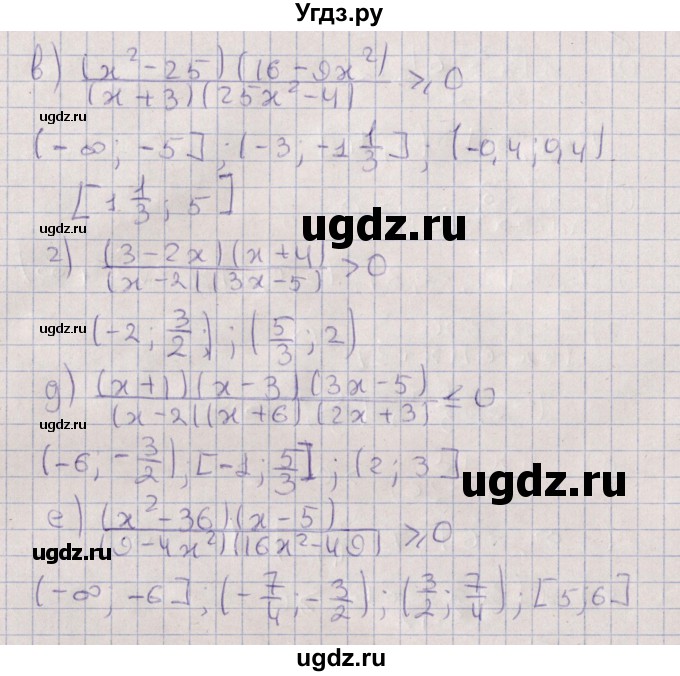 Угдз.ру
в) (x² − 25)(16 − 9x²) / (x + 3)(25x² − 4) ≥ 0
ugdz.ru
(−∞; −5]; (−3; −1 1/3]; (−0,4; 0,4)
[1 1/3; 5]
ugdz.ru
ugdz.ru
г) (3 − 2x)(x + 4) / (x − 2)(3x − 5) > 0
ugdz.ru
(−2; 3/2); (5/3; 2)
д) (x + 1)(x − 3)(3x − 5) / (x − 2)(x + 6)(2x + 3) ≤ 0
ugdz.ru
(−6; −3/2); [−1; 5/3]; (2; 3]
ugdz.ru
е) (x² − 36)(x − 5) / (9 − 4x²)(16x² − 49) ≥ 0
ugdz.ru
(−∞; −6]; (−7/4; −3/2); (3/2; 7/4); [5; 6]
ugdz.ru